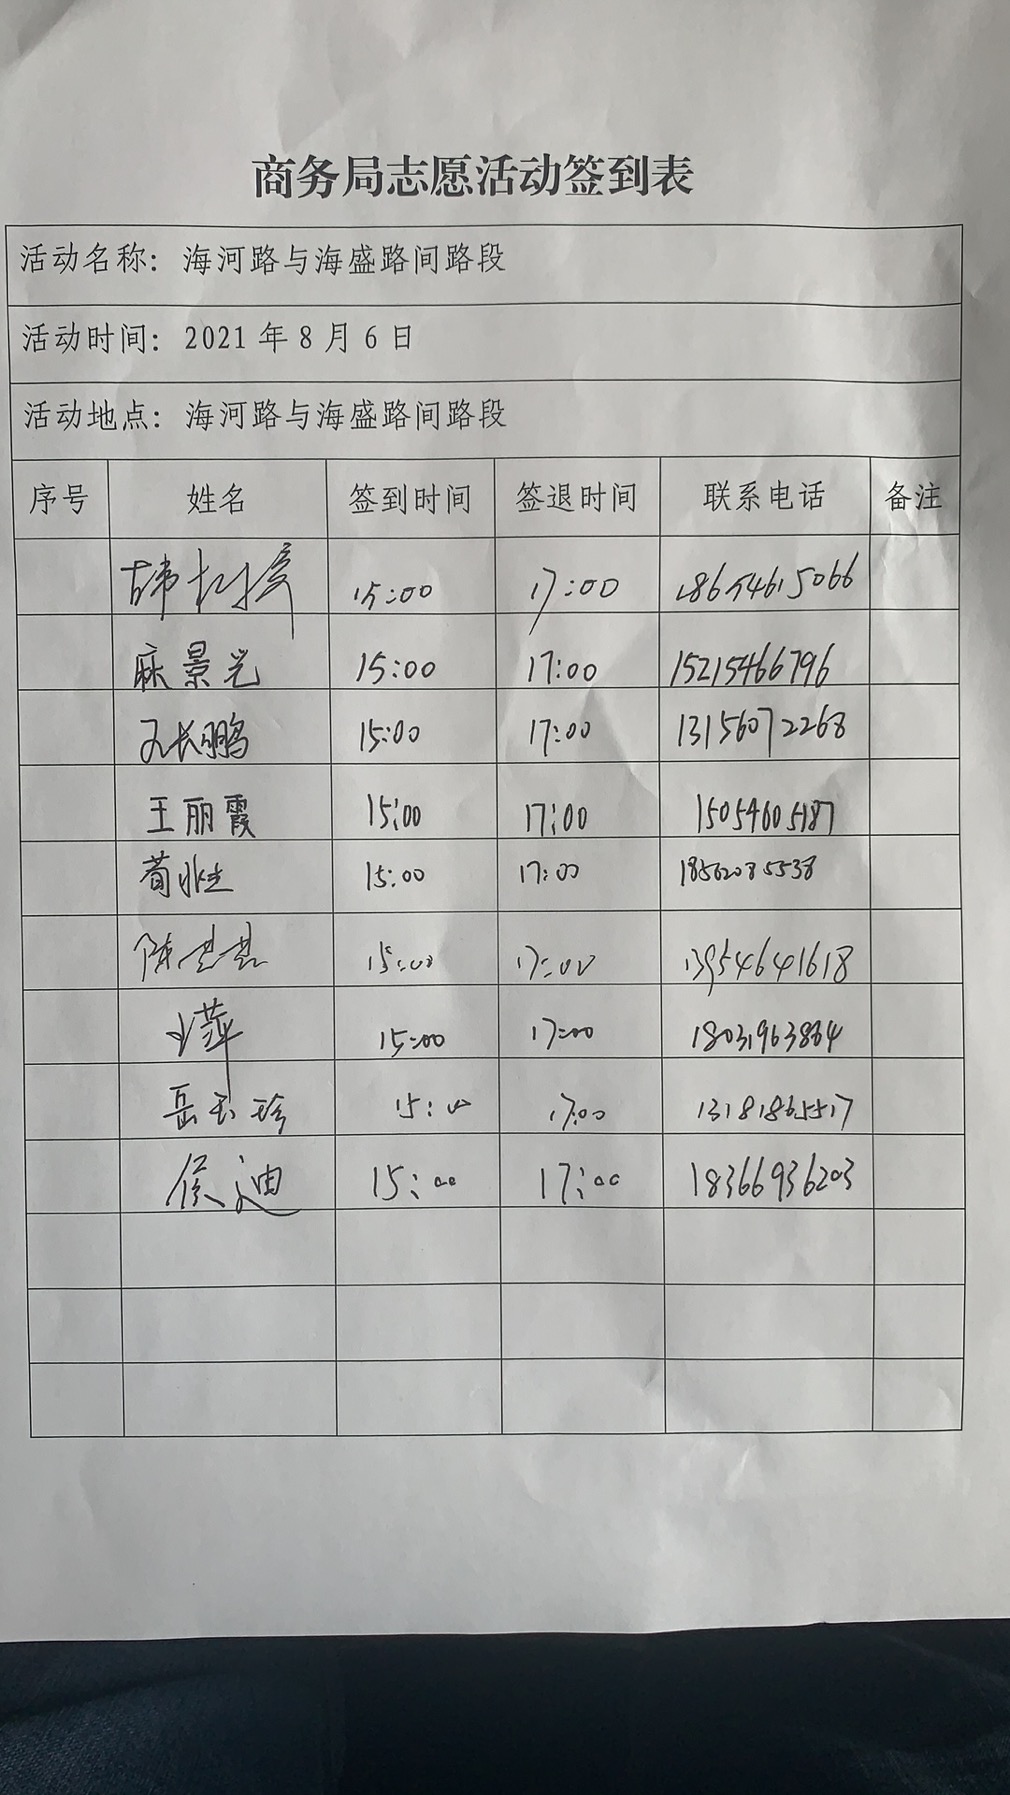 商务局志愿活动签到表
活动名称：海河路与海盛路间路段
活动时间：2021 年 8 月 6 日
活动地点：海河路与海盛路间路段
序号 姓名 签到时间 签退时间 联系电话 备注
15:00 17:00 18654615066
麻景光 15:00 17:00 15215466796
长鹏 15:00 17:00 13156072268
王丽霞 15:00 17:00 15054605187
15:00 17:00 18562085538
陈 15:00 17:00 13954641618
萍 15:00 17:00 18031963864
岳玉珍 15:00 17:00 13181865517
侯迪 15:00 17:00 18366936203